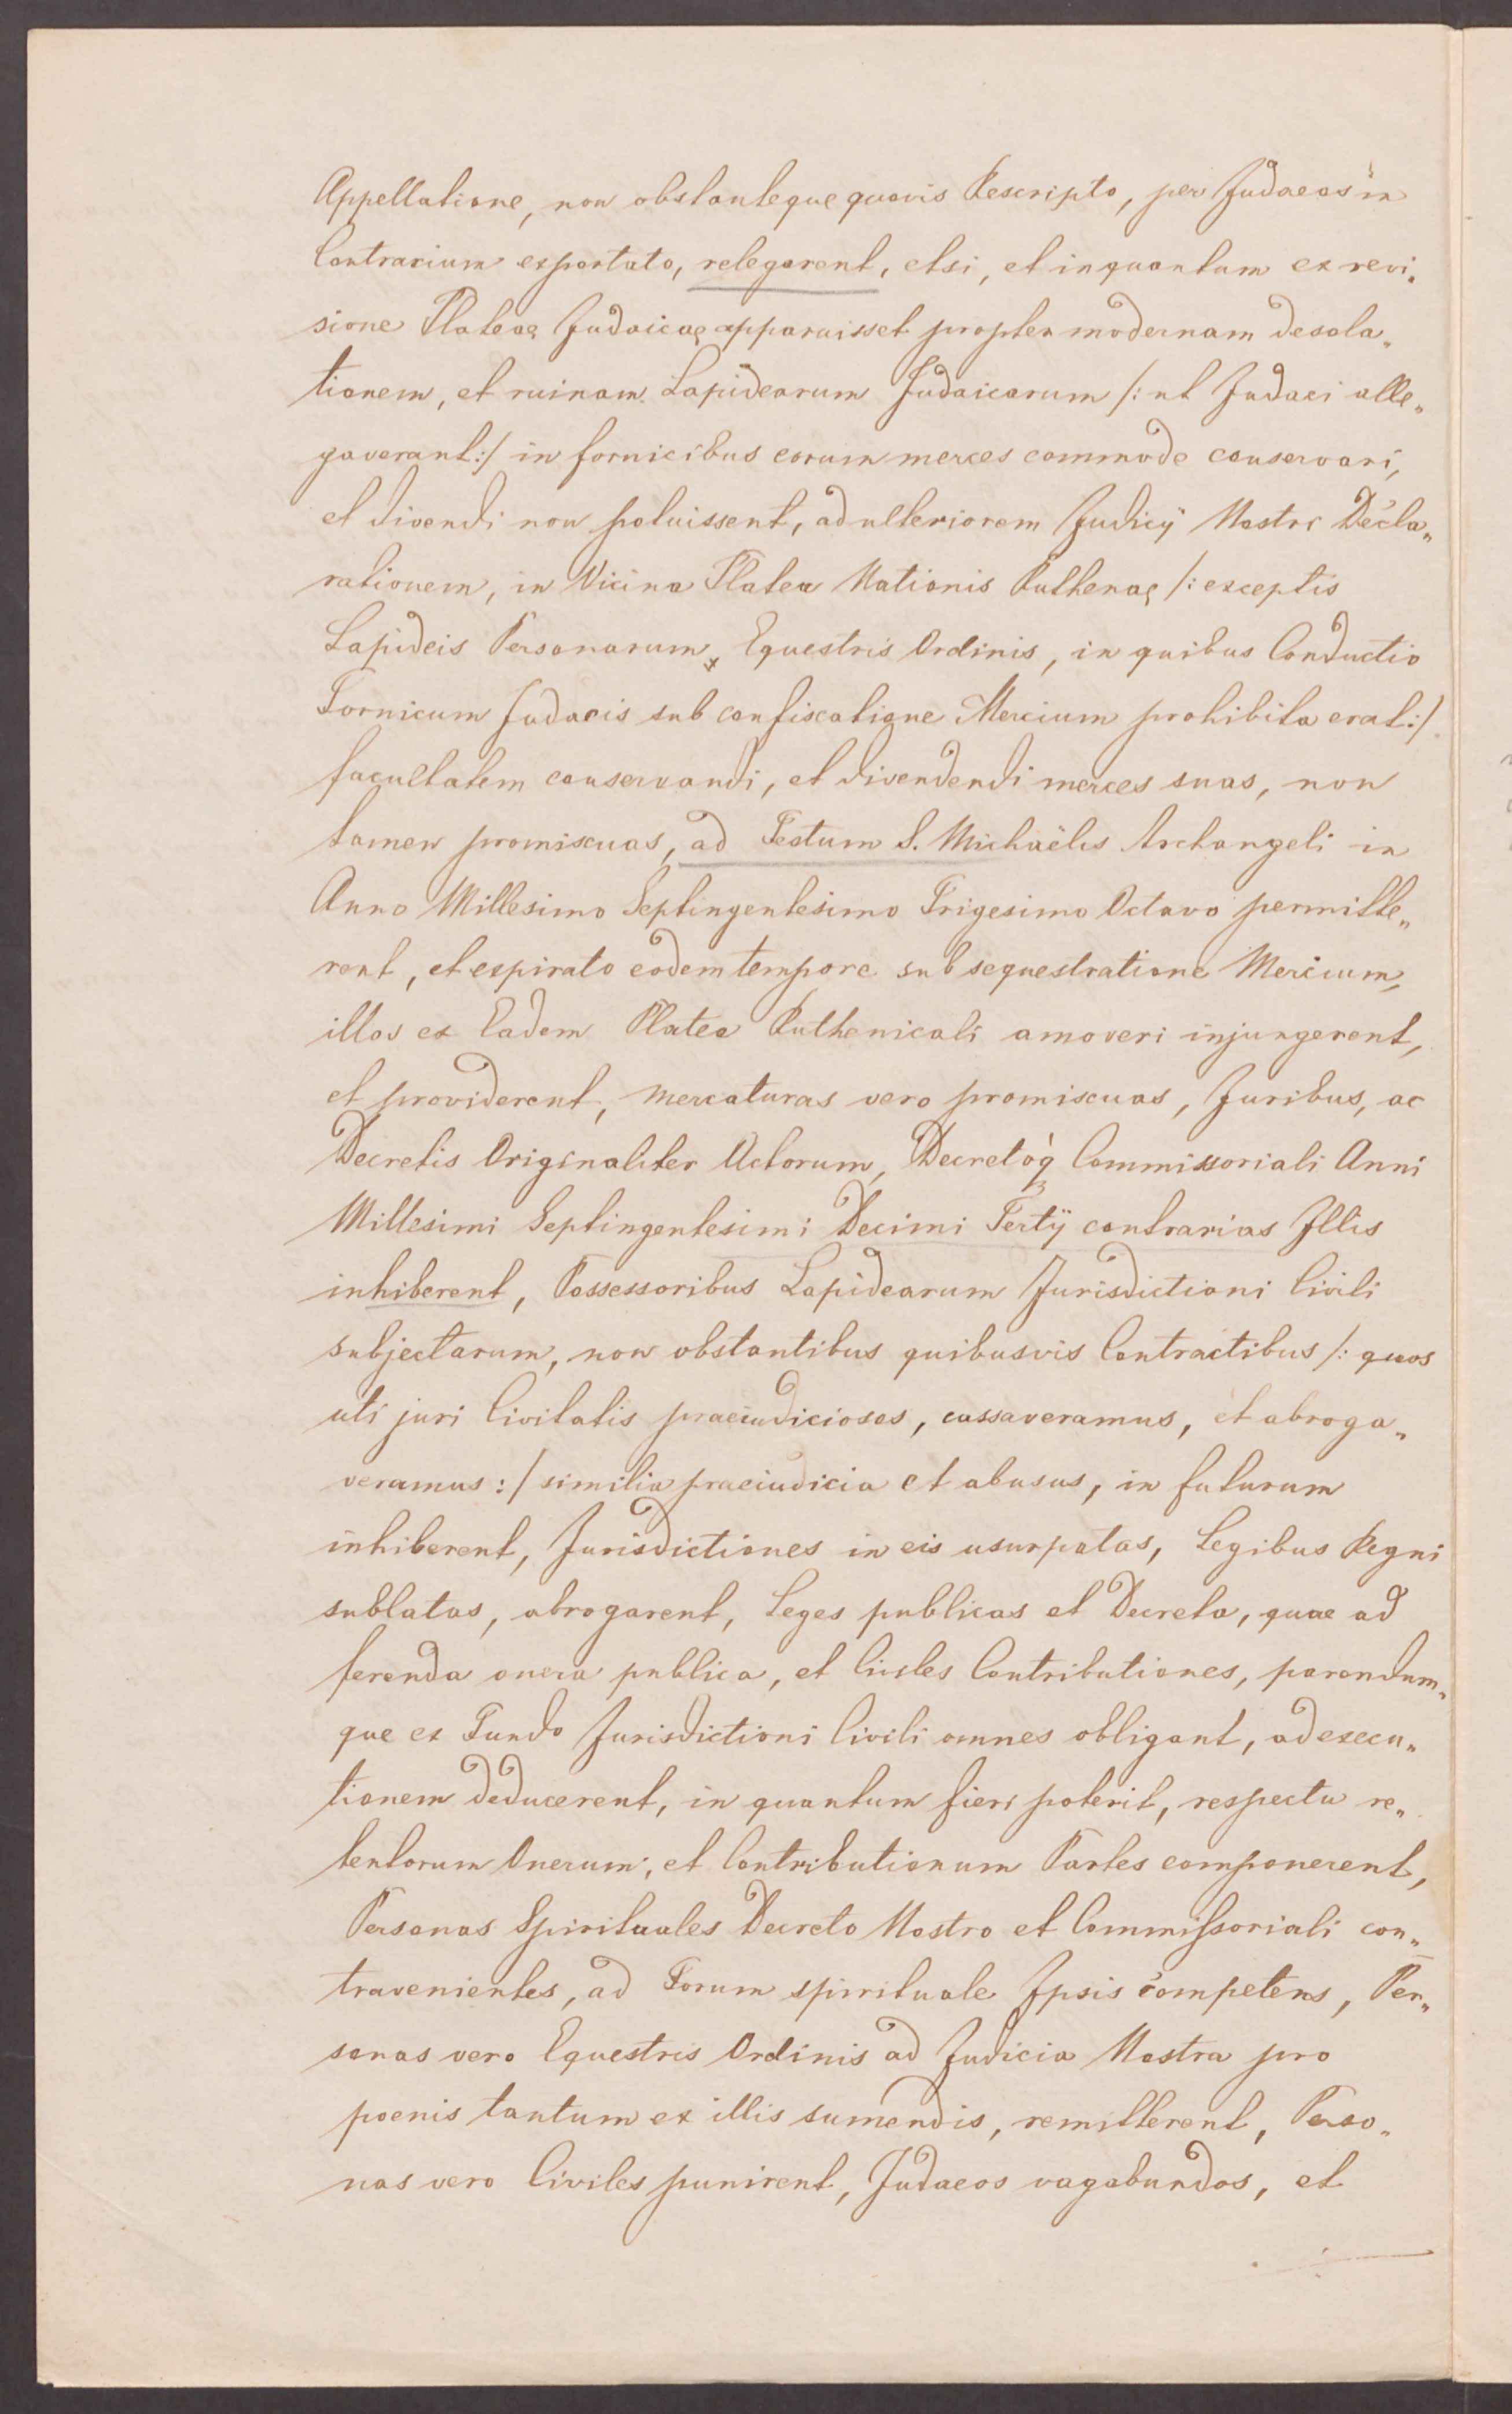 Appellatione, non obstanteque quovis Rescripto, per Judaeos in
Contrarium exportato, relegarent, etsi, et inquantum ex revi„
sione Plateae Judaicae apparuisset propter modernam desola„
tionem, et ruinam Lapidearum Judaicarum /: ut Judaei alle„
gaverant :/ in fornicibus eorum merces commode conservari,
et divendi non potuissent, ad ulteriorem Judicij Nostri Decla„
rationem, in Vicina Platea Nationis Ruthenae /: exceptis
Lapideis Personarum Equestris Ordinis, in quibus Conductio
Fornicum Judaeis sub confiscatione Mercium prohibita erat :/
facultatem conservandi, et divendendi merces suas, non
tamen promiscuas, ad Festum S. Michaëlis Archangeli in
Anno Millesimo Septingentesimo Trigesimo Octavo permitte„
rent, et expirato eodem tempore sub sequestratione Mercium,
illos ex Eadem Platea Ruthenicali amoveri injungerent,
et providerent, mercaturas vero promiscuas, Juribus, ac
Decretis Originaliter Actorum, Decretoq Commissoriali Anni
Millesimi Septingentesimi Decimi Tertij contrarias Illis
inhiberent, Possessoribus Lapidearum Jurisdictioni Civili
subjectarum, non obstantibus quibusvis Contractibus /: quos
uti juri Civitatis praeiudiciosos, cassaveramus, et abroga„
veramus :/ similia praeiudicia et abusus, in futurum
inhiberent, Jurisdictiones in eis usurpatas, Legibus Regni
sublatas, abrogarent, Leges publicas et Decreta, quae ad
ferenda onera publica, et Civiles Contributiones, parendum„
que ex Fundo Jurisdictioni Civili omnes obligant, ad execu„
tionem deducerent, in quantum fieri poterit, respectu re„
tentorum Onerum, et Contributionum Partes componerent,
Personas Spirituales Decreto Nostro et Commissoriali con„
travenientes, ad Forum spirituale Ipsis competens, Per„
sonas vero Equestris Ordinis ad Judicia Nostra pro
poenis tantum ex illis sumendis, remitterent, Perso„
nas vero Civiles punirent, Judaeos vagabundos, et